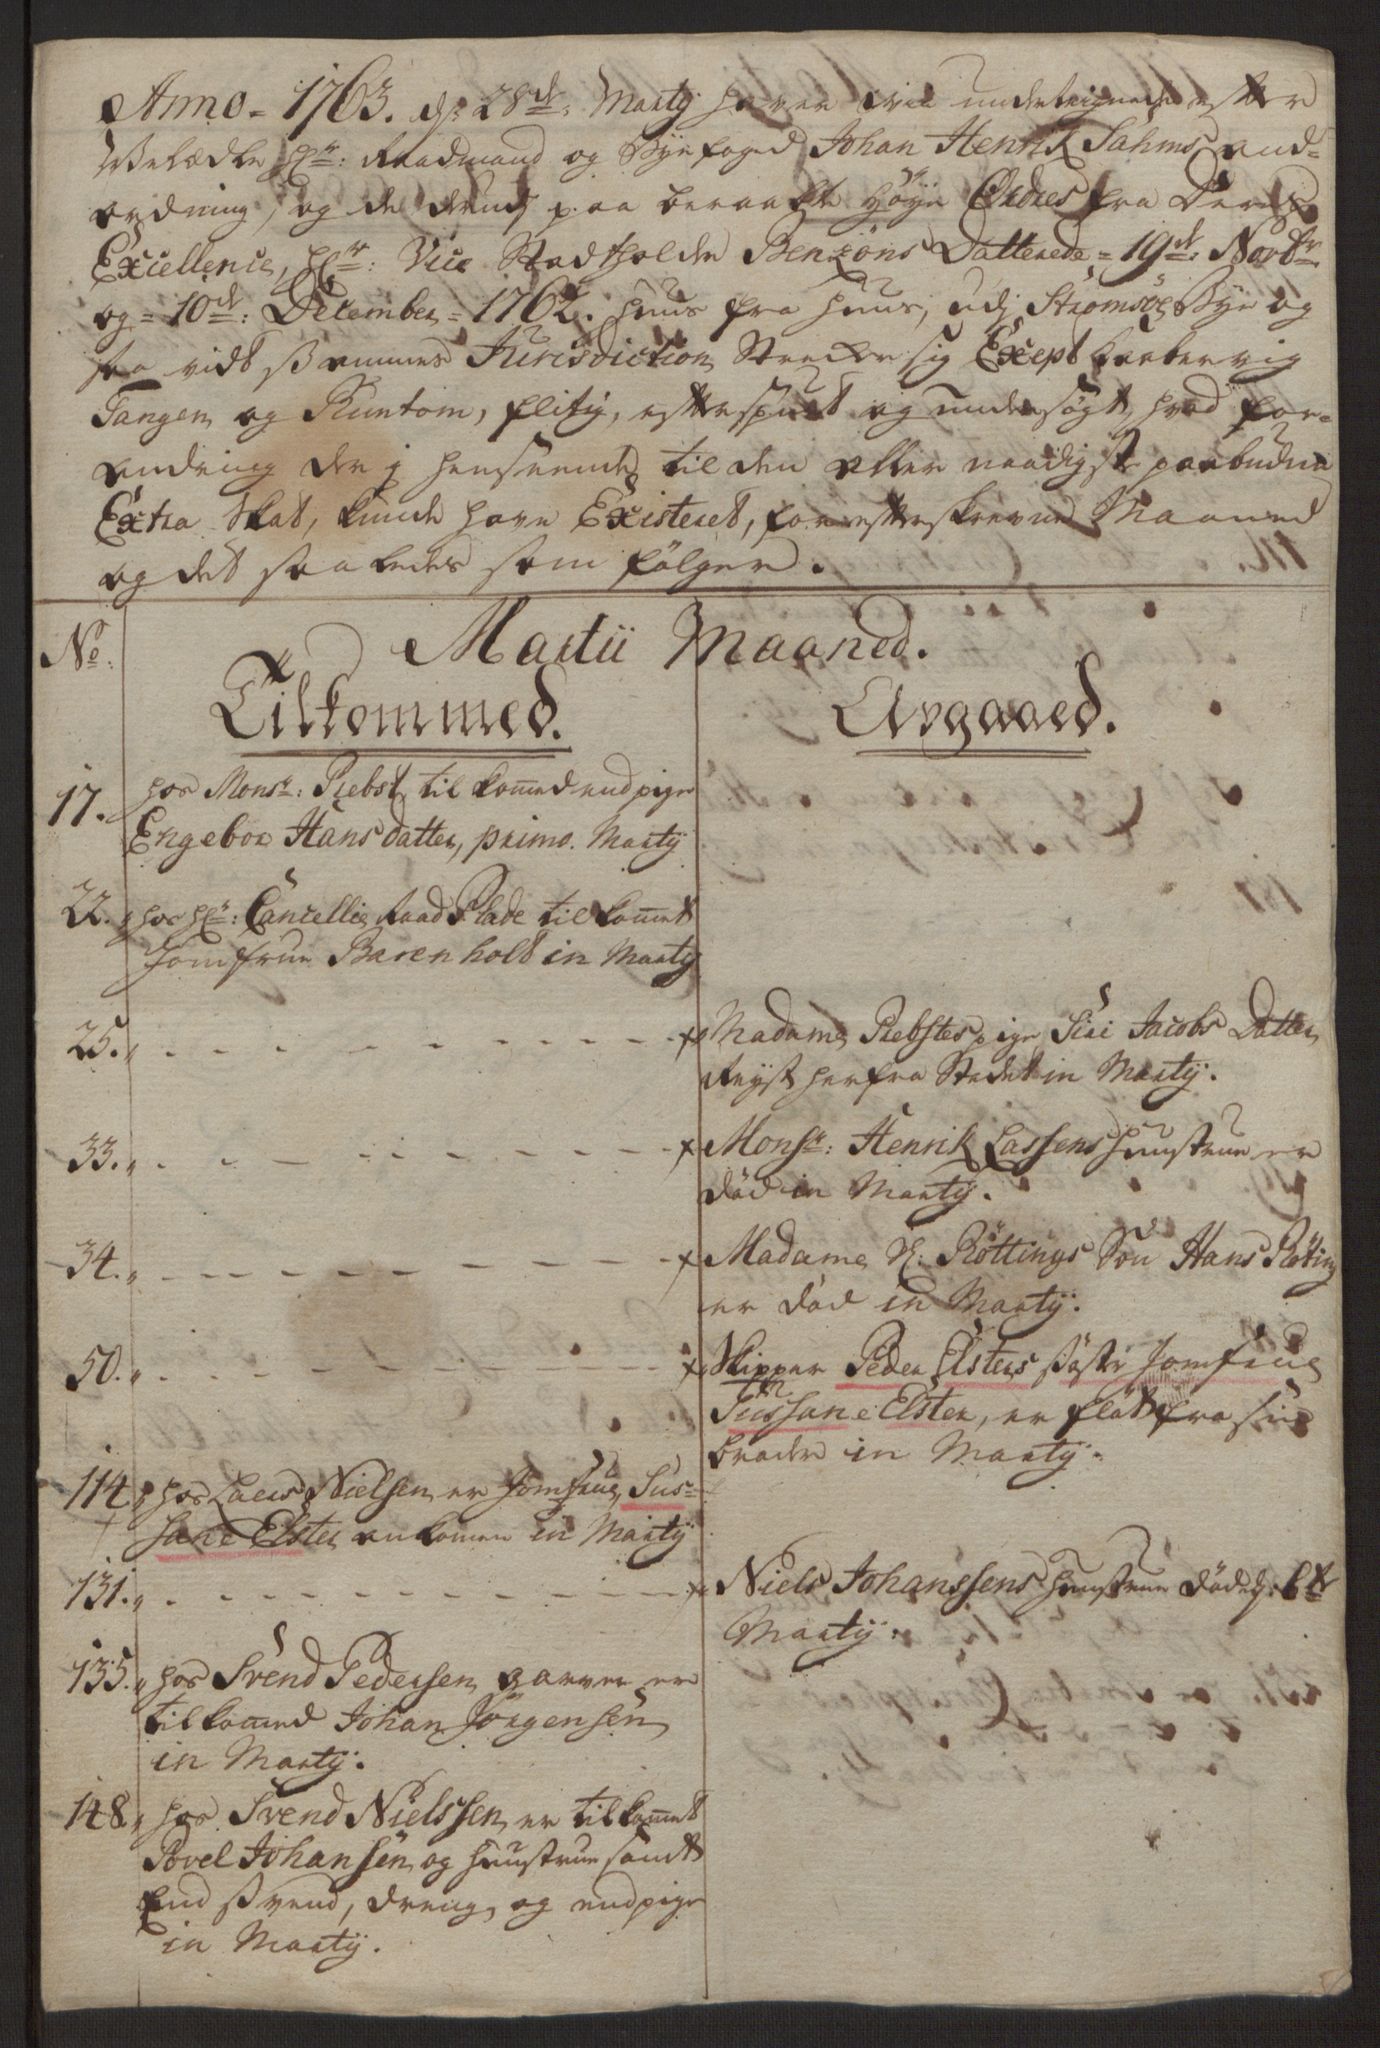 Anno = 1763. d: 28de: Martÿ haver vii undertegnede efter
Welædle Hr: Raadmand og Byefoged Johan Henrik Sahms and=
ordning, og de deruj paa beraabte Høÿe Ordres fra Deres
Excellence, Hr: Vice Stadtholder Benzons Datterede = 19de: Novbr
og = 10de: December = 1762. huus fra huus, udj Strømsöe Bÿe og
saa vidt sammes Jurisdiction Strecker sig Except
Tangen og Kuntom, flitig, efterspurt og undersøgt, hvad for=
andring der j henseende til den aller naadigst paabudne
Extra Skat, kunde have Existeret, for efterskrevne Maaned
og det saaledes som følger.
No: Martii Maaned.
Tilkommed. Avgaaed.
17. hos Monsr: Piebst til kommed end pige
Engebor Hans datter, primo. Martÿ
22. hos Hr: Cancellie Raad Plade til kommet
Jomfrue Barenholt in Martÿ
25. Madame Piebstes pige Siri Jacobs Datter
Reÿst herfra Stedet in Martÿ.
33. Monsr: Henrik Lassens hustrue er
död in Martÿ.
34. Madame Röttings Sön Hans Röting
er död in Martÿ.
50. Skipper Peder Elsters söster Jomfrue
Sussane Elster, er flöt fra sin
broder in Martÿ.
114. hos Laers Nielsen er Jomfrue Sus=
sane Elster ankomen in Martÿ
131. Niels Johanssens hustrue döde d: 6te
Martÿ.
135. hos Svend Pedersen garver er
tilkommed Johan Jörgensen
in Martÿ.
148. hos Svend Nielssen er tilkommet
Povel Johansen og hustrue samt
End svend, dreng, og end pige
in Martÿ.